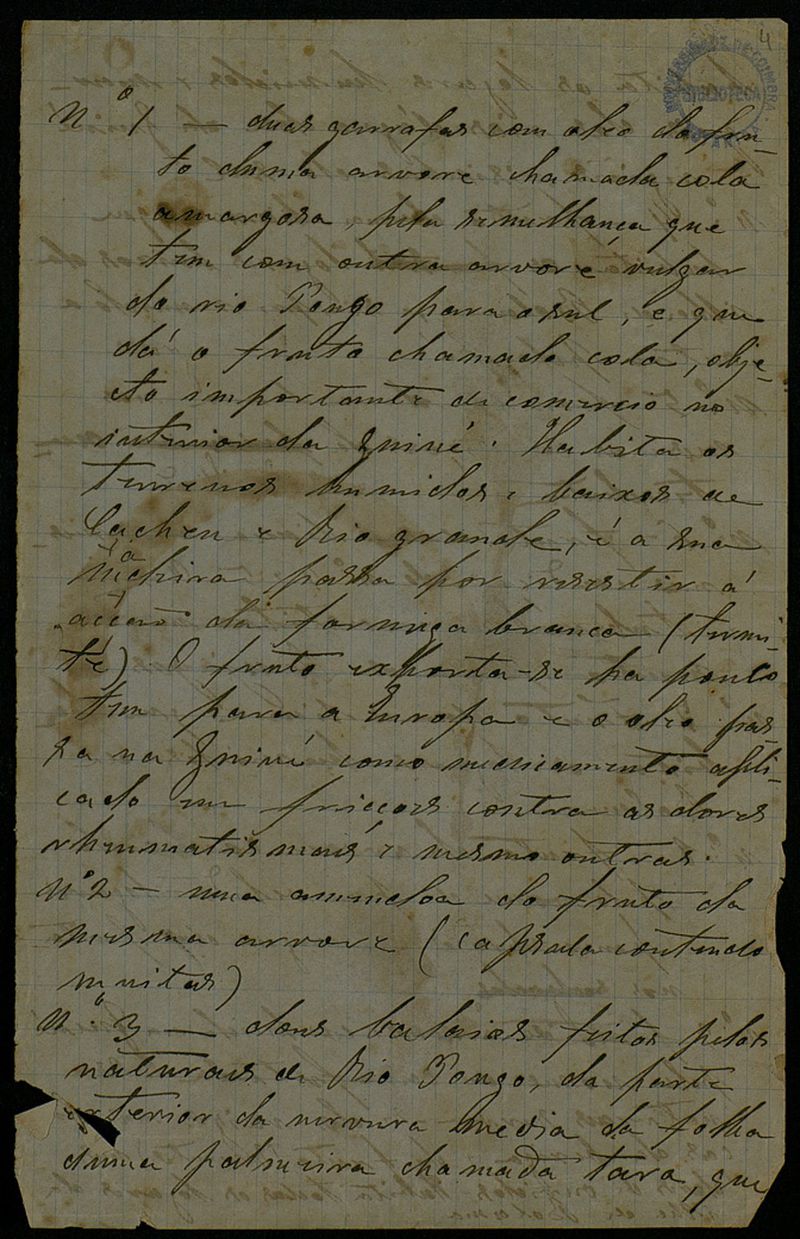 4
UNIVERSIDADE DE COIMBRA
BIBLIOTECA
Nº 1 — duas garrafas com oleo do fru-
to duma arvore chamada cola
amargosa, pela semelhança que
tem com outra arvore vulgar
do rio Pongo para o sul, e que
dá o fruto chamado cola, obje-
cto importante de comercio no
interior da Guiné. Habita os
terrenos humidos e baixos de
Cacheu e Rio grande, e a sua
madeira passa por resistir á
acção da formiga branca (termi-
te). O fruto exporta-se ha pouco
tem para a Europa e o oleo pas-
sa na Guiné como medicamento apli-
cado em fricções contra as dores
rheumatismais e mesmo outras.
Nº 2 — uma amendoa do fruto da
mesma arvore (capsula contendo
muitas)
Nº 3 — dous balaios feitos pelos
naturaes de Rio Pongo, da parte
exterior da nervura media da folha
duma palmeira chamada tara, que